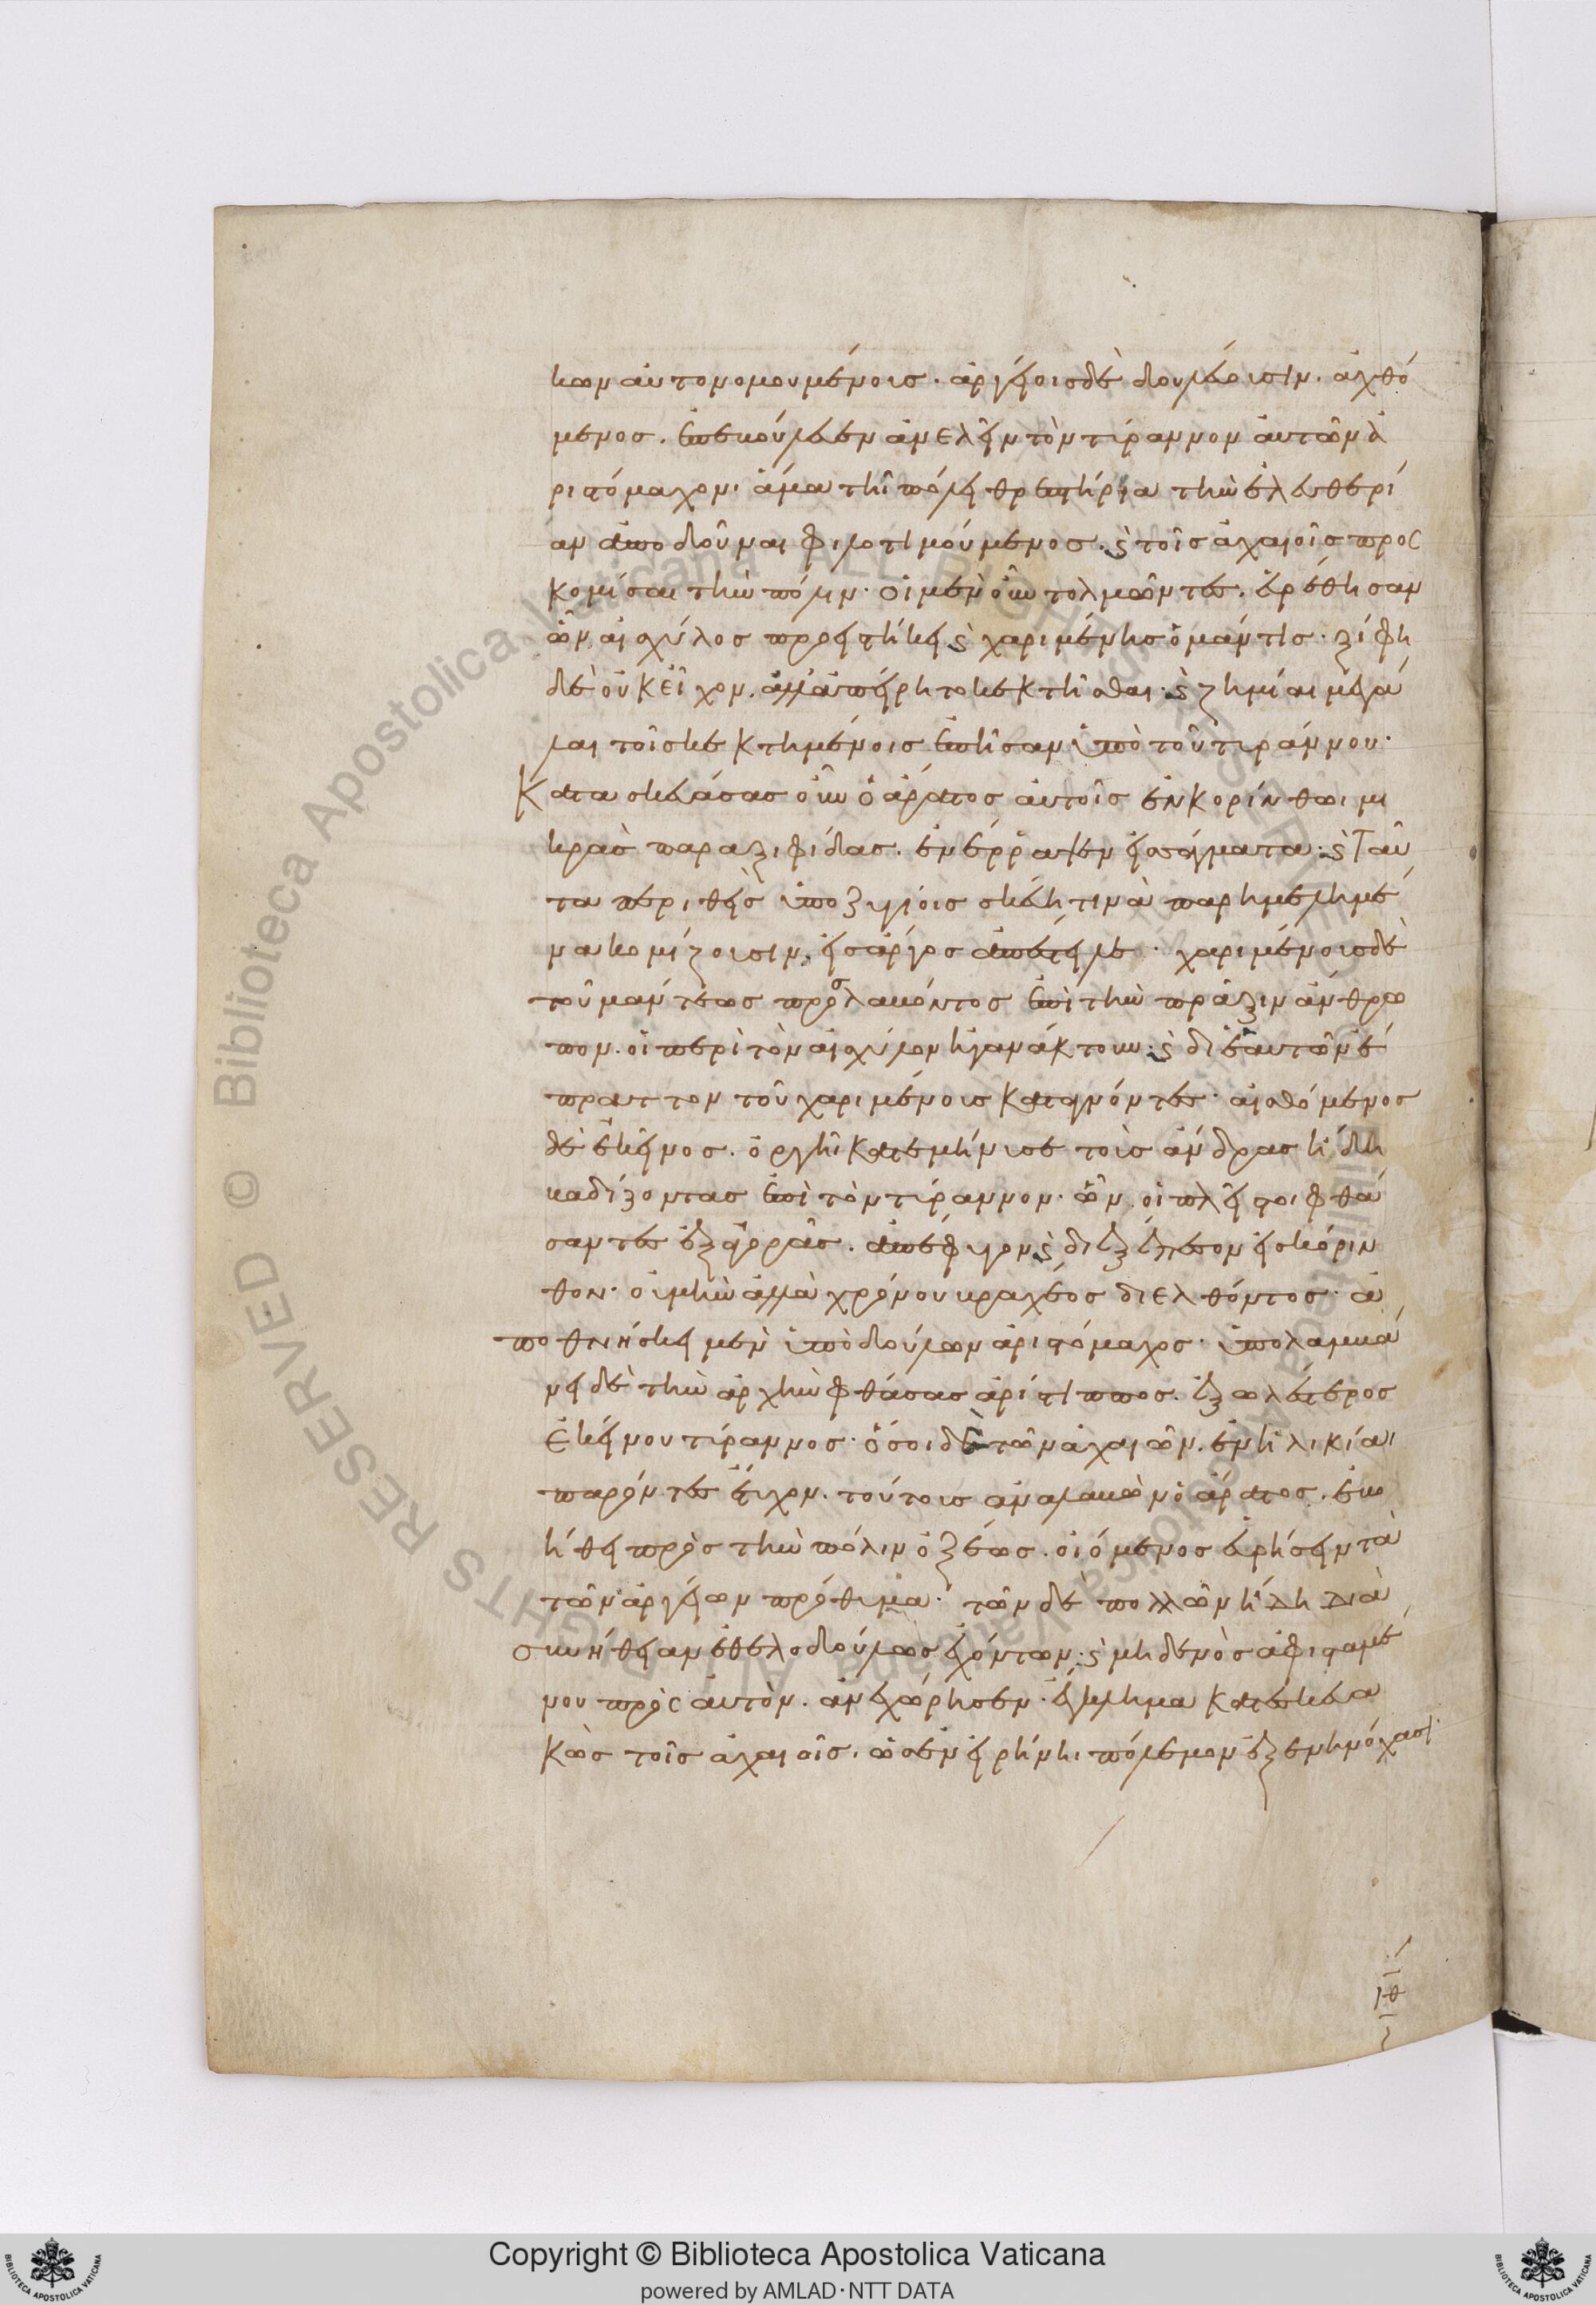 κων αὐτονομουμένοις. ἀργείοις δὲ δουλεύουσιν. ἀχθό
μενος. ἐπεβούλευεν ἀνελεῖν τὸν τύραννον αὐτῶν ἀ
ριστόμαχον. ἅμα τῆι πόλει θρεπτήρια τὴν ἐλευθερί
αν ἀποδοῦναι φιλοτιμούμενος. ϛ τοῖς ἀχαιοῖς προσ
κομίσαι τὴν πόλιν. οἱ μὲν οὖν τολμῶντες. εὑρέθησαν
ὧν αἰσχύλος προειστήκει ϛ χαριμένης ὁ μάντις. ξίφη
δὲ οὐκ εἶχον. ἀλλ' ἀπείρητο κεκτῆσθαι. ϛ ζημίαι μεγά
λαι τοῖς κεκτημένοις ἐπῆσαν ὑπὸ τοῦ τυράννου.
Κατασκευάσας οὖν ὁ ἄρατος αὐτοῖς ἐν κορίνθωι μι
κρὰς παραξιφίδας. ἐνέρραψεν εἰς σάγματα. ϛ ταῦ
τα περιθεὶς ὑποζυγίοις σκεύη τινὰ παρημελημέ
να κομίζουσιν. εἰς ἄργος ἀπέστειλε. χαριμένους δὲ
τοῦ μάντεως προσλαβόντος ἐπὶ τὴν πρᾶξιν ἄνθρω
πον. οἱ περὶ τὸν αἰσχύλον ἠγανάκτουν. ϛ δι' ἑαυτῶν ἔ
πραττον τοῦ χαριμένους καταγνόντες. αἰσθόμενος
δὲ ἐκεῖνος. ὀργῆι κατεμήνυσε τοὺς ἄνδρας ἤδη
βαδίζοντας ἐπὶ τὸν τύραννον. ὧν οἱ πλεῖστοι φθά
σαντες ἐξ ἀγορᾶς. ἀπέφυγον ϛ διεξέπεσον εἰς κόριν
θον. οὐ μὴν ἀλλὰ χρόνου βραχέος διελθόντος. ἀ
ποθνήσκει μὲν ὑπὸ δούλων ἀριστόμαχος. ὑπολαμβά
νει δὲ τὴν ἀρχὴν φθάσας ἀρίστιππος. ἐξωλέστερος
ἐκείνου τύραννος. ὅσοι δὲ τῶν ἀχαιῶν. ἐν ἡλικίαι
παρόντες ἔτυχον. τούτους ἀναλαβὼν ὁ ἄρατος. ἐβο
ήθει πρὸς τὴν πόλιν ὀξέως. οἰόμενος εὑρήσειν τὰ
τῶν ἀργείων πρόθυμα. τῶν δὲ πολλῶν ἤδη διὰ
συνήθειαν ἐθελοδούλως ἐχόντων. ϛ μηδενὸς ἀφισταμέ
νου πρὸς αὐτὸν. ἀνεχώρησεν. ἔγκλημα κατεσκευα
κὼς τοῖς ἀχαιοῖς. ὡς ἐν εἰρήνηι πόλεμον ἐξενηνόχασι.
ιθ